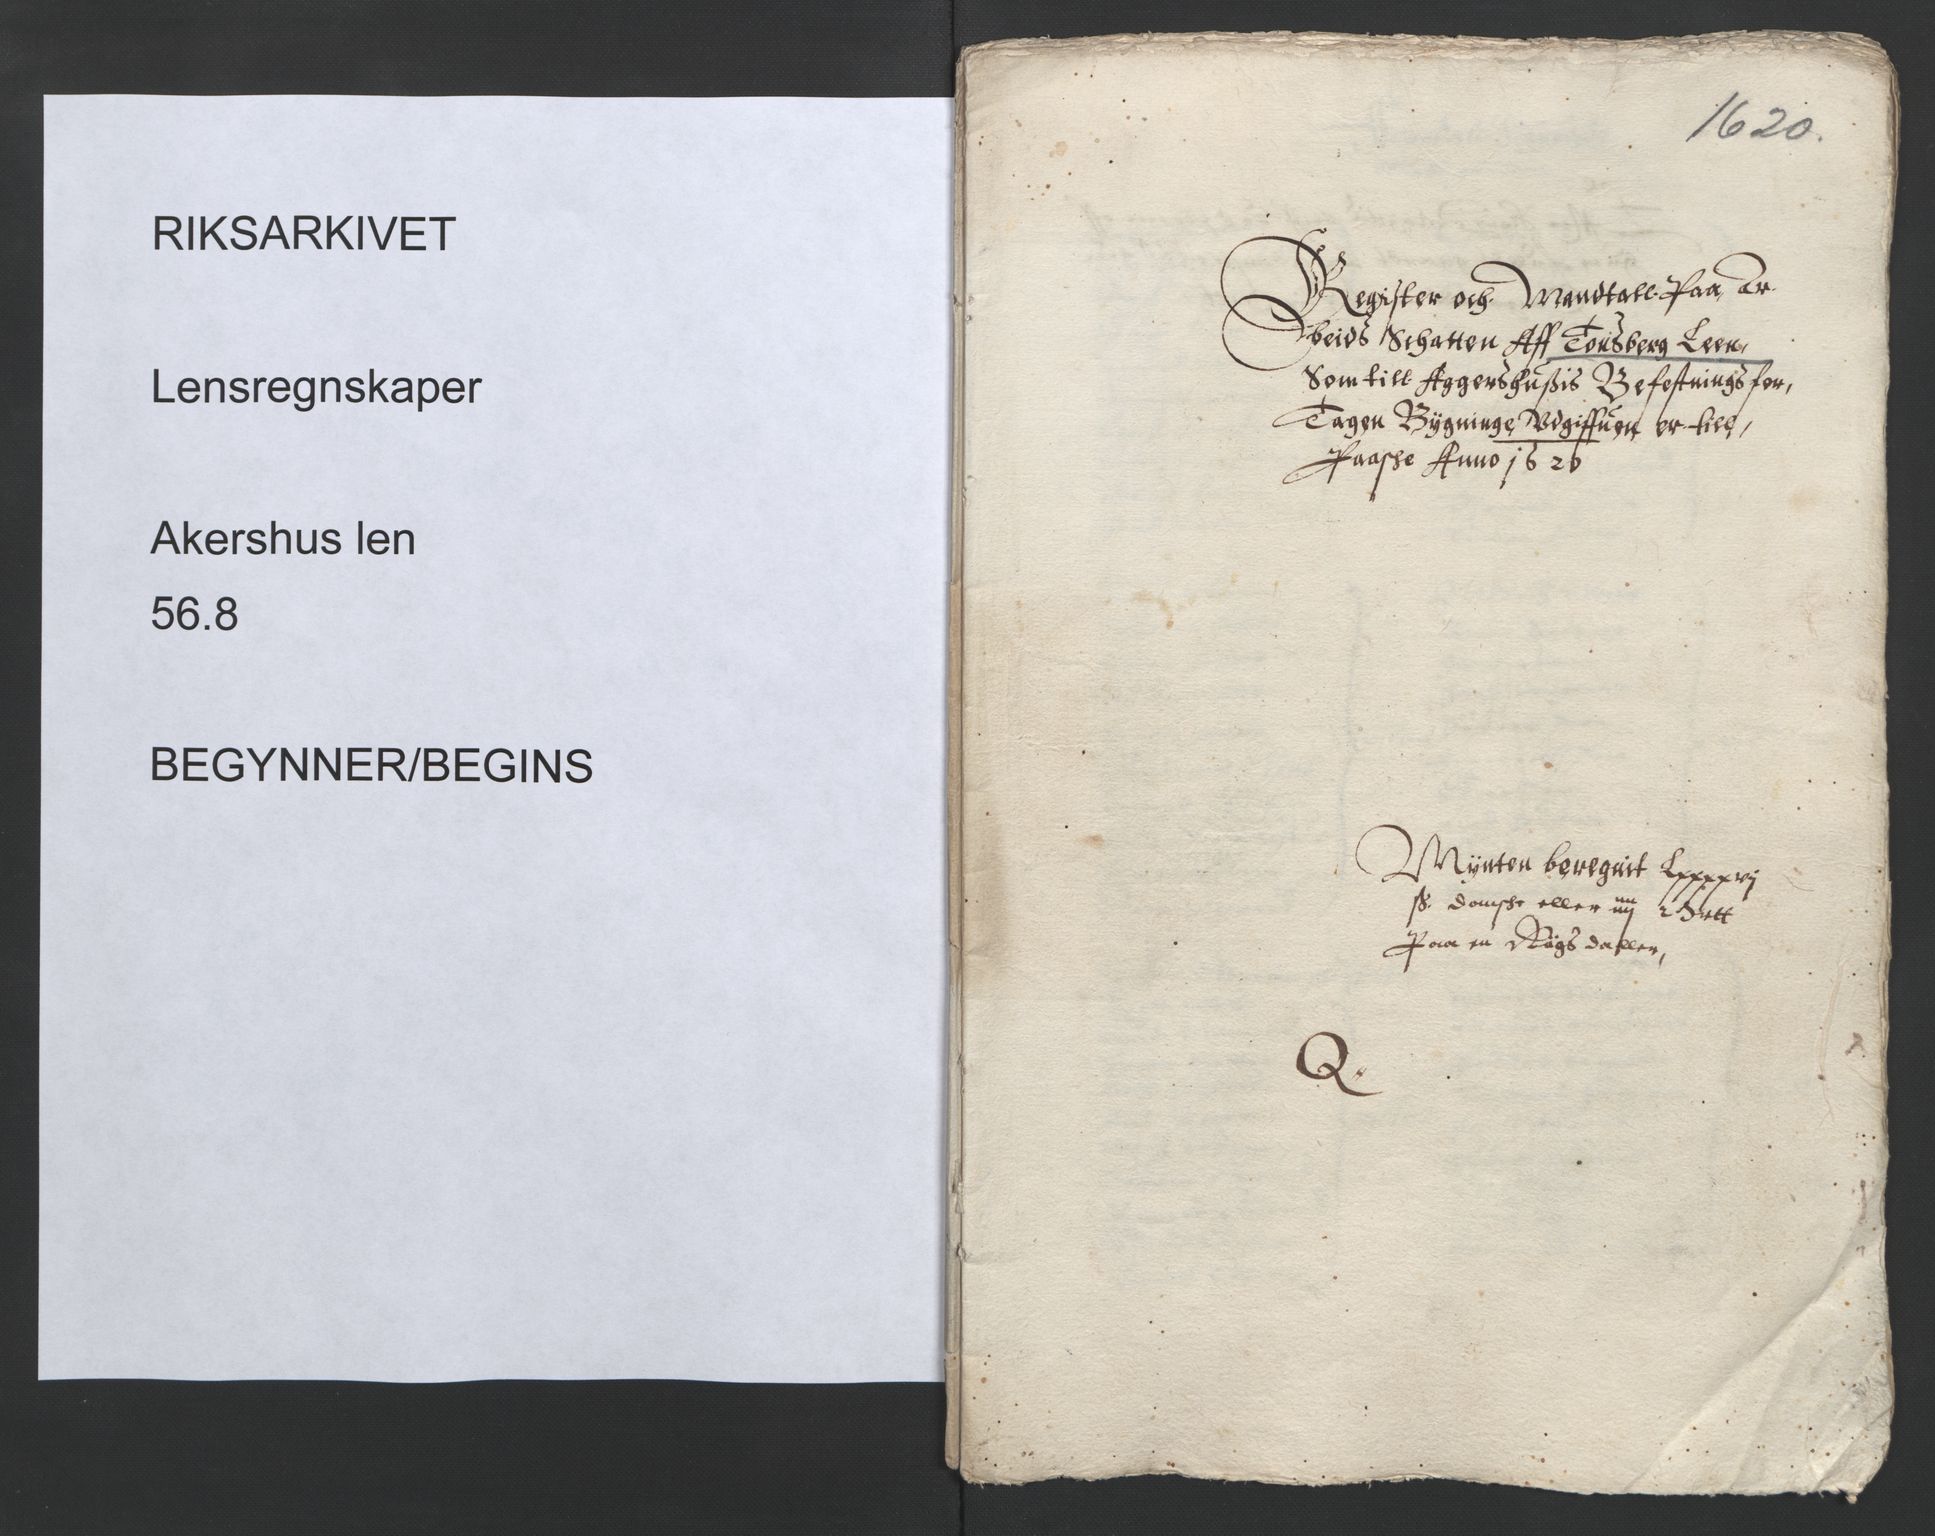 RIKSARKIVET
Lensregnskaper
Akershus len
56.8
BEGYNNER/BEGINS
1620.
Register och Mandtall Paa Ar
beids Schatten Aff Tonsberg Leen,
Som till Aggershusis Befestnings for,
Tagen Bÿgninge Vdgiffuen er till,
Paasche Anno 1620
Mÿnten beregnit Lxxxxvj
ß. Danske eller iiij Ortt
Paa en Rigs daller,
Q.